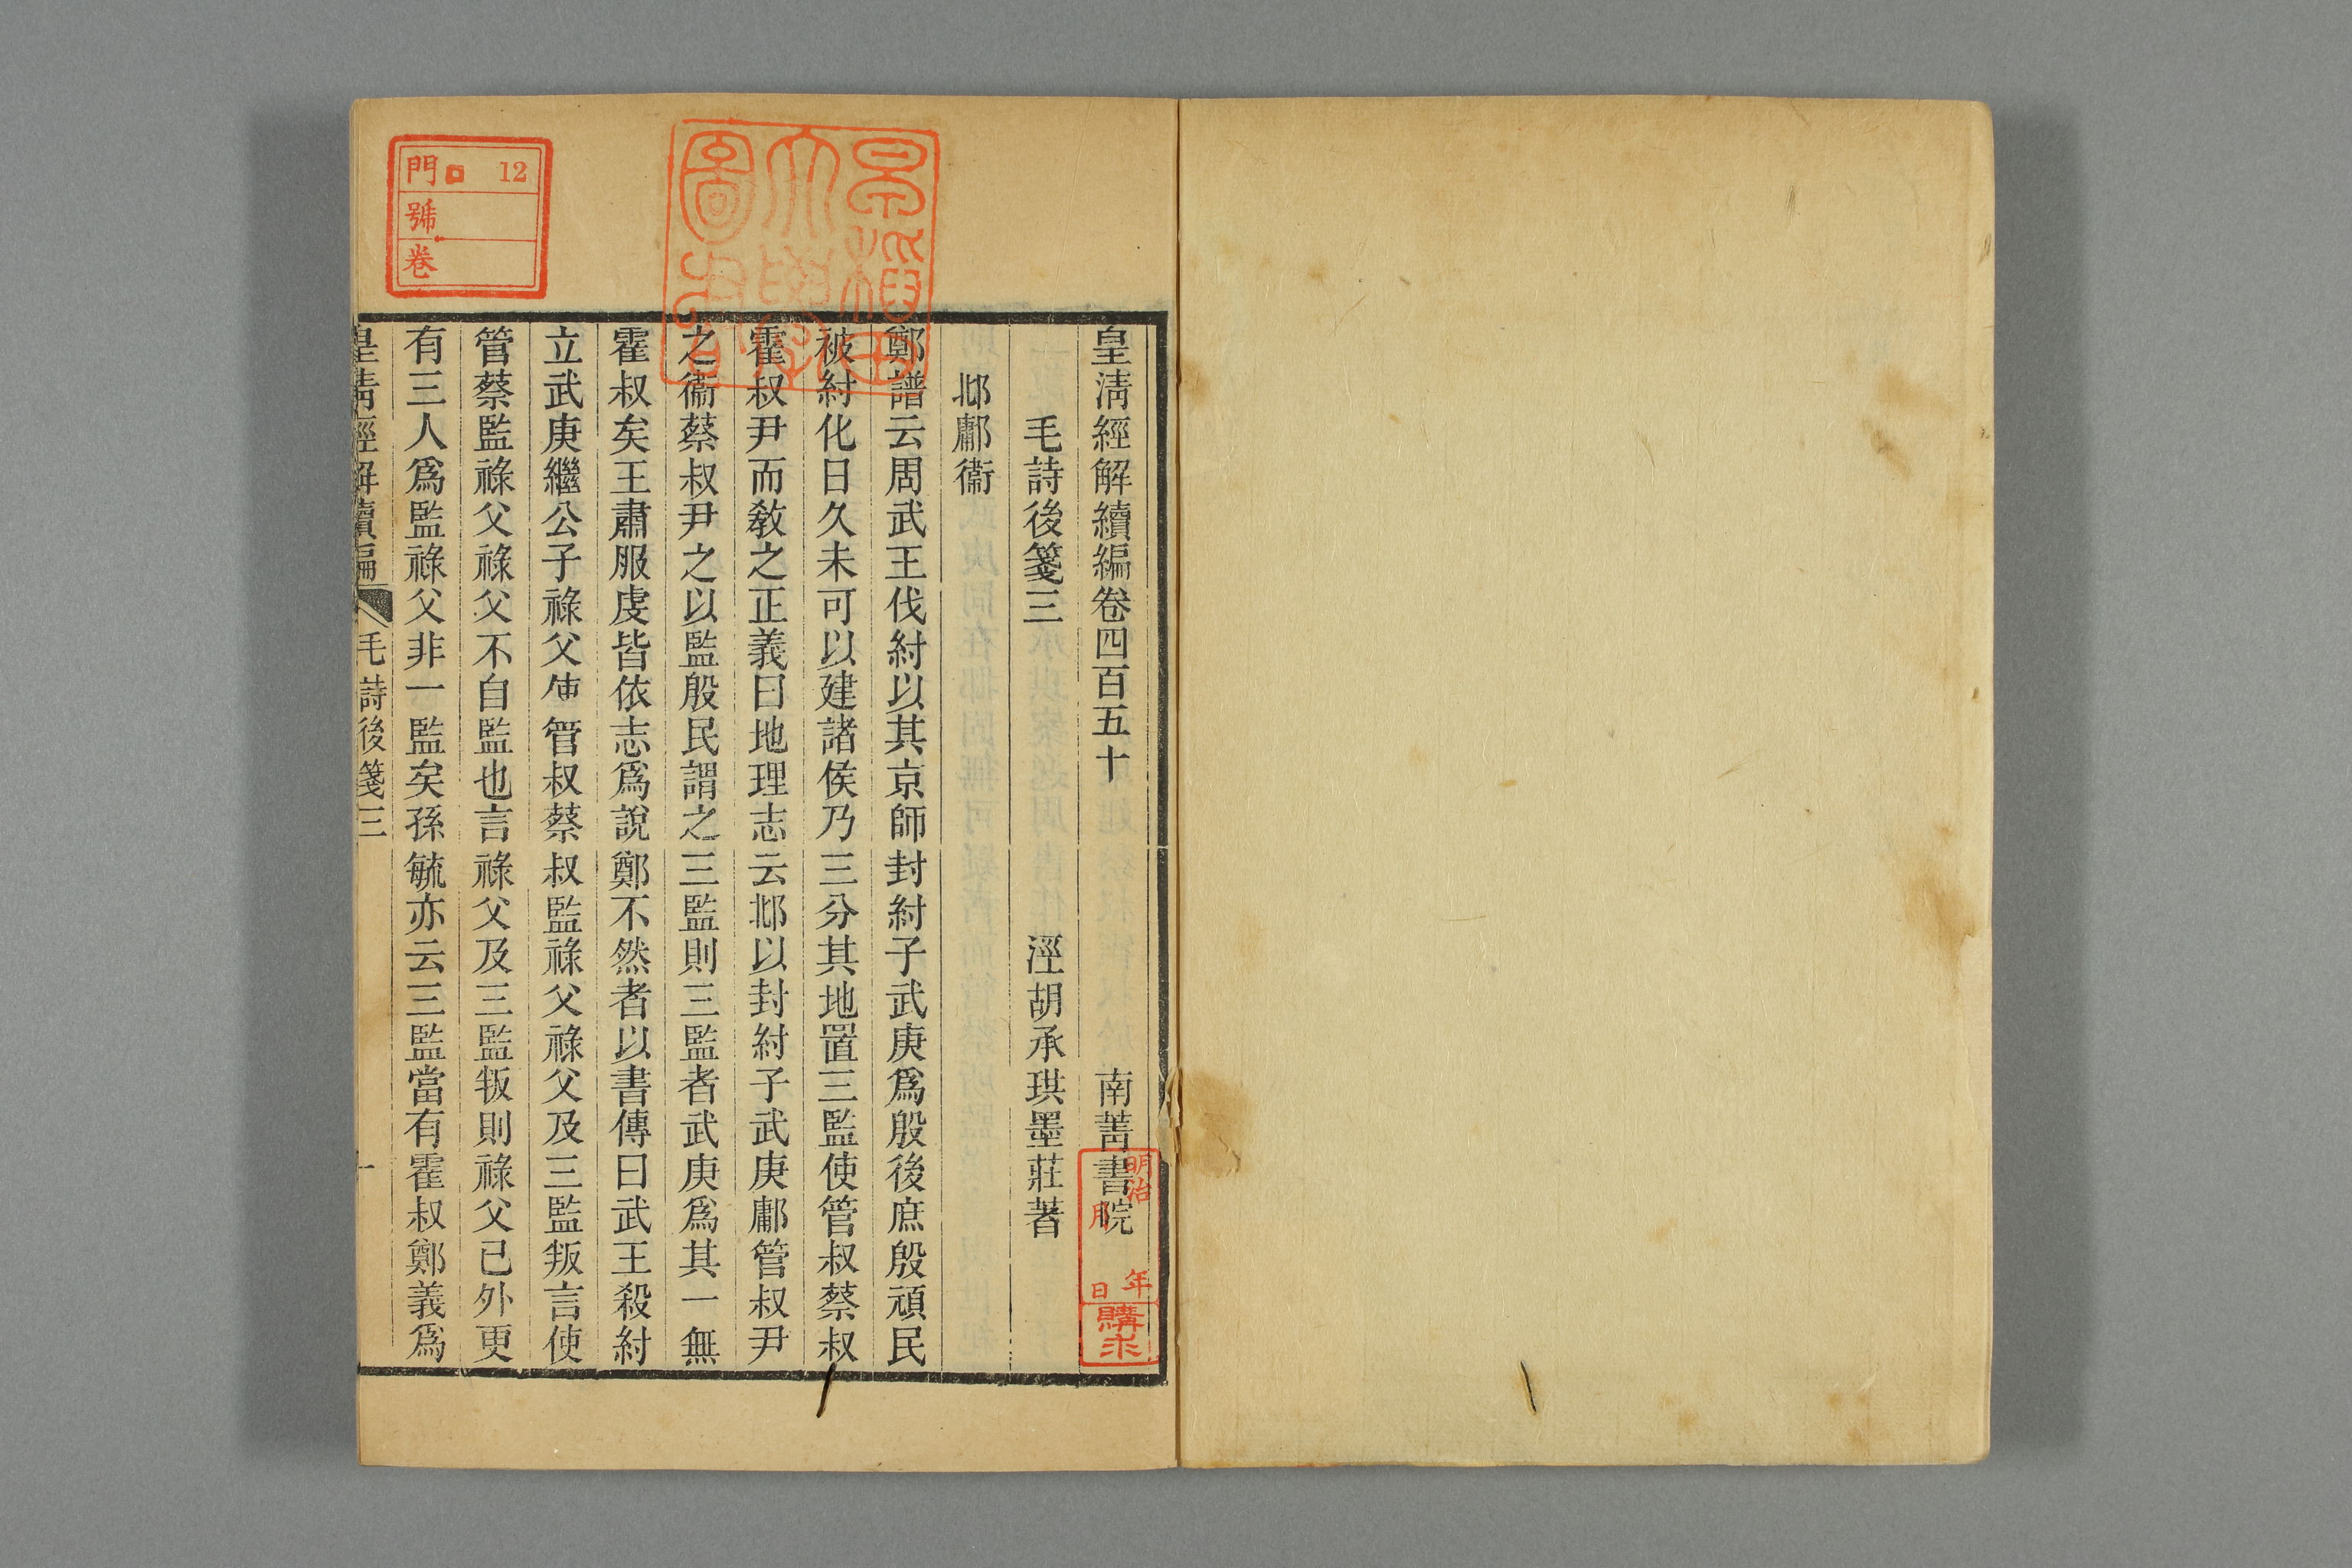 皇清經解續編卷四百五十
南菁書院
毛詩後箋三
涇胡承珙墨莊著
邶鄘衞
鄭譜云周武王伐紂以其京師封紂子武庚爲殷後庶殷頑民
被紂化日久未可以建諸侯乃三分其地置三監使管叔蔡叔
霍叔尹而敎之正義曰地理志云邶以封紂子武庚鄘管叔尹
之衞蔡叔尹之以監殷民謂之三監則三監者武庚爲其一無
霍叔矣王肅服虔皆依志爲說鄭不然者以書傳曰武王殺紂
立武庚繼公子祿父使管叔蔡叔監祿父祿父及三監叛言使
管蔡監祿父祿父不自監也言祿父及三監叛則祿父已外更
有三人爲監祿父非一監矣孫毓亦云三監當有霍叔鄭義爲
皇清經解續編
毛詩後箋三
一
門 口 12
號
卷
早稲田
大學
圖書
明治 年
月 日
購求